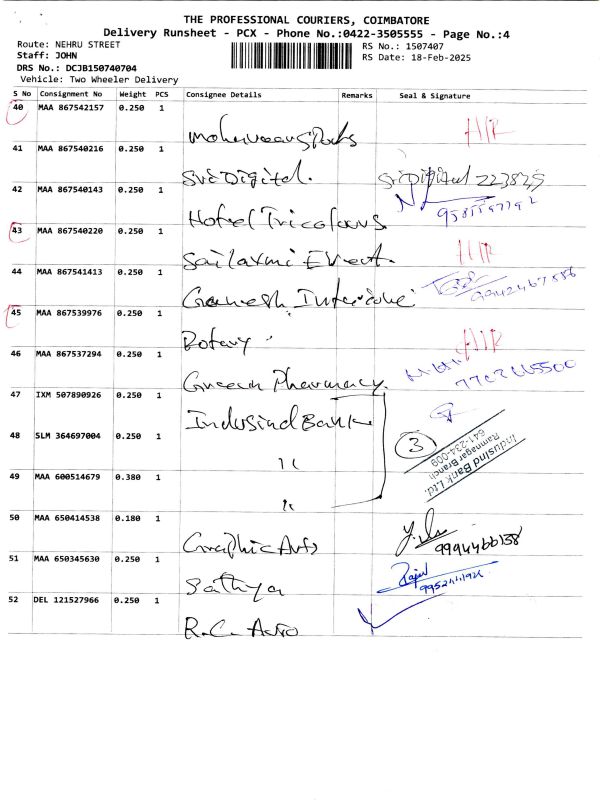 THE PROFESSIONAL COURIERS, COIMBATORE
Delivery Runsheet - PCX - Phone No.:0422-3505555 - Page No.:4
Route: NEHRU STREET
RS No.: 1507407
Staff: JOHN
RS Date: 18-Feb-2025
DRS No.: DCJB150740704
Vehicle: Two Wheeler Delivery
S No Consignment No Weight PCS Consignee Details Remarks Seal & Signature
40 MAA 867542157 0.250 1
H/R
41 MAA 867540216 0.250 1
Sri Digital. Sri Digital 223835
42 MAA 867540143 0.250 1
Hotel
43 MAA 867540220 0.250 1
Sailaxmi Event. H/R
44 MAA 867541413 0.250 1
Ganesh 9942467556
45 MAA 867539976 0.250 1
Rotary H/R
46 MAA 867537294 0.250 1
Green Pharmacy. 7702665500
47 IXM 507890926 0.250 1
Indusind Bank
48 SLM 364697004 0.250 1
" 3
Indusind Bank Ltd.
Ramnagar Branch
641-234-009
49 MAA 600514679 0.380 1
"
50 MAA 650414538 0.180 1
Graphic Arts 9994466138
51 MAA 650345630 0.250 1
Sathya Rajul
52 DEL 121527966 0.250 1
R.C. Auto